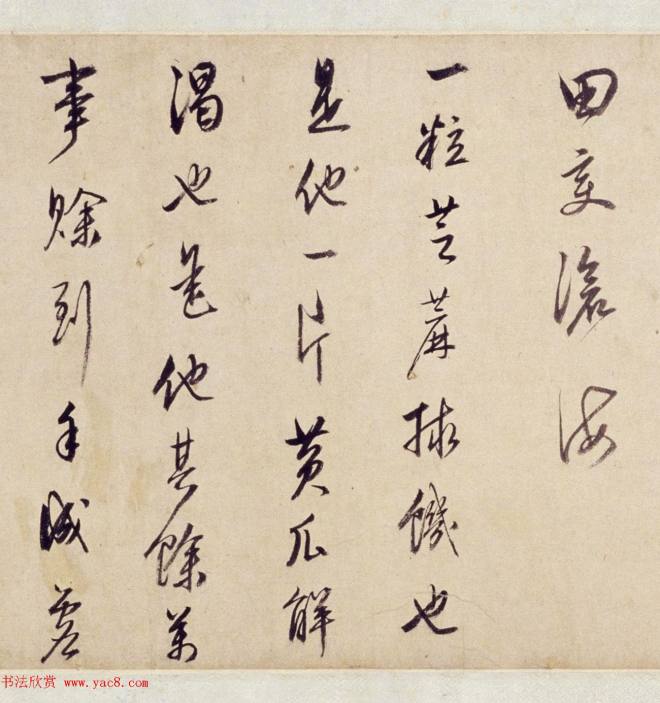 田变滄海
一粒芝蔴捄饑也
是他一片黄瓜解
渴也是他其餘萬
事賒到手
书法欣赏 www.yac8.com